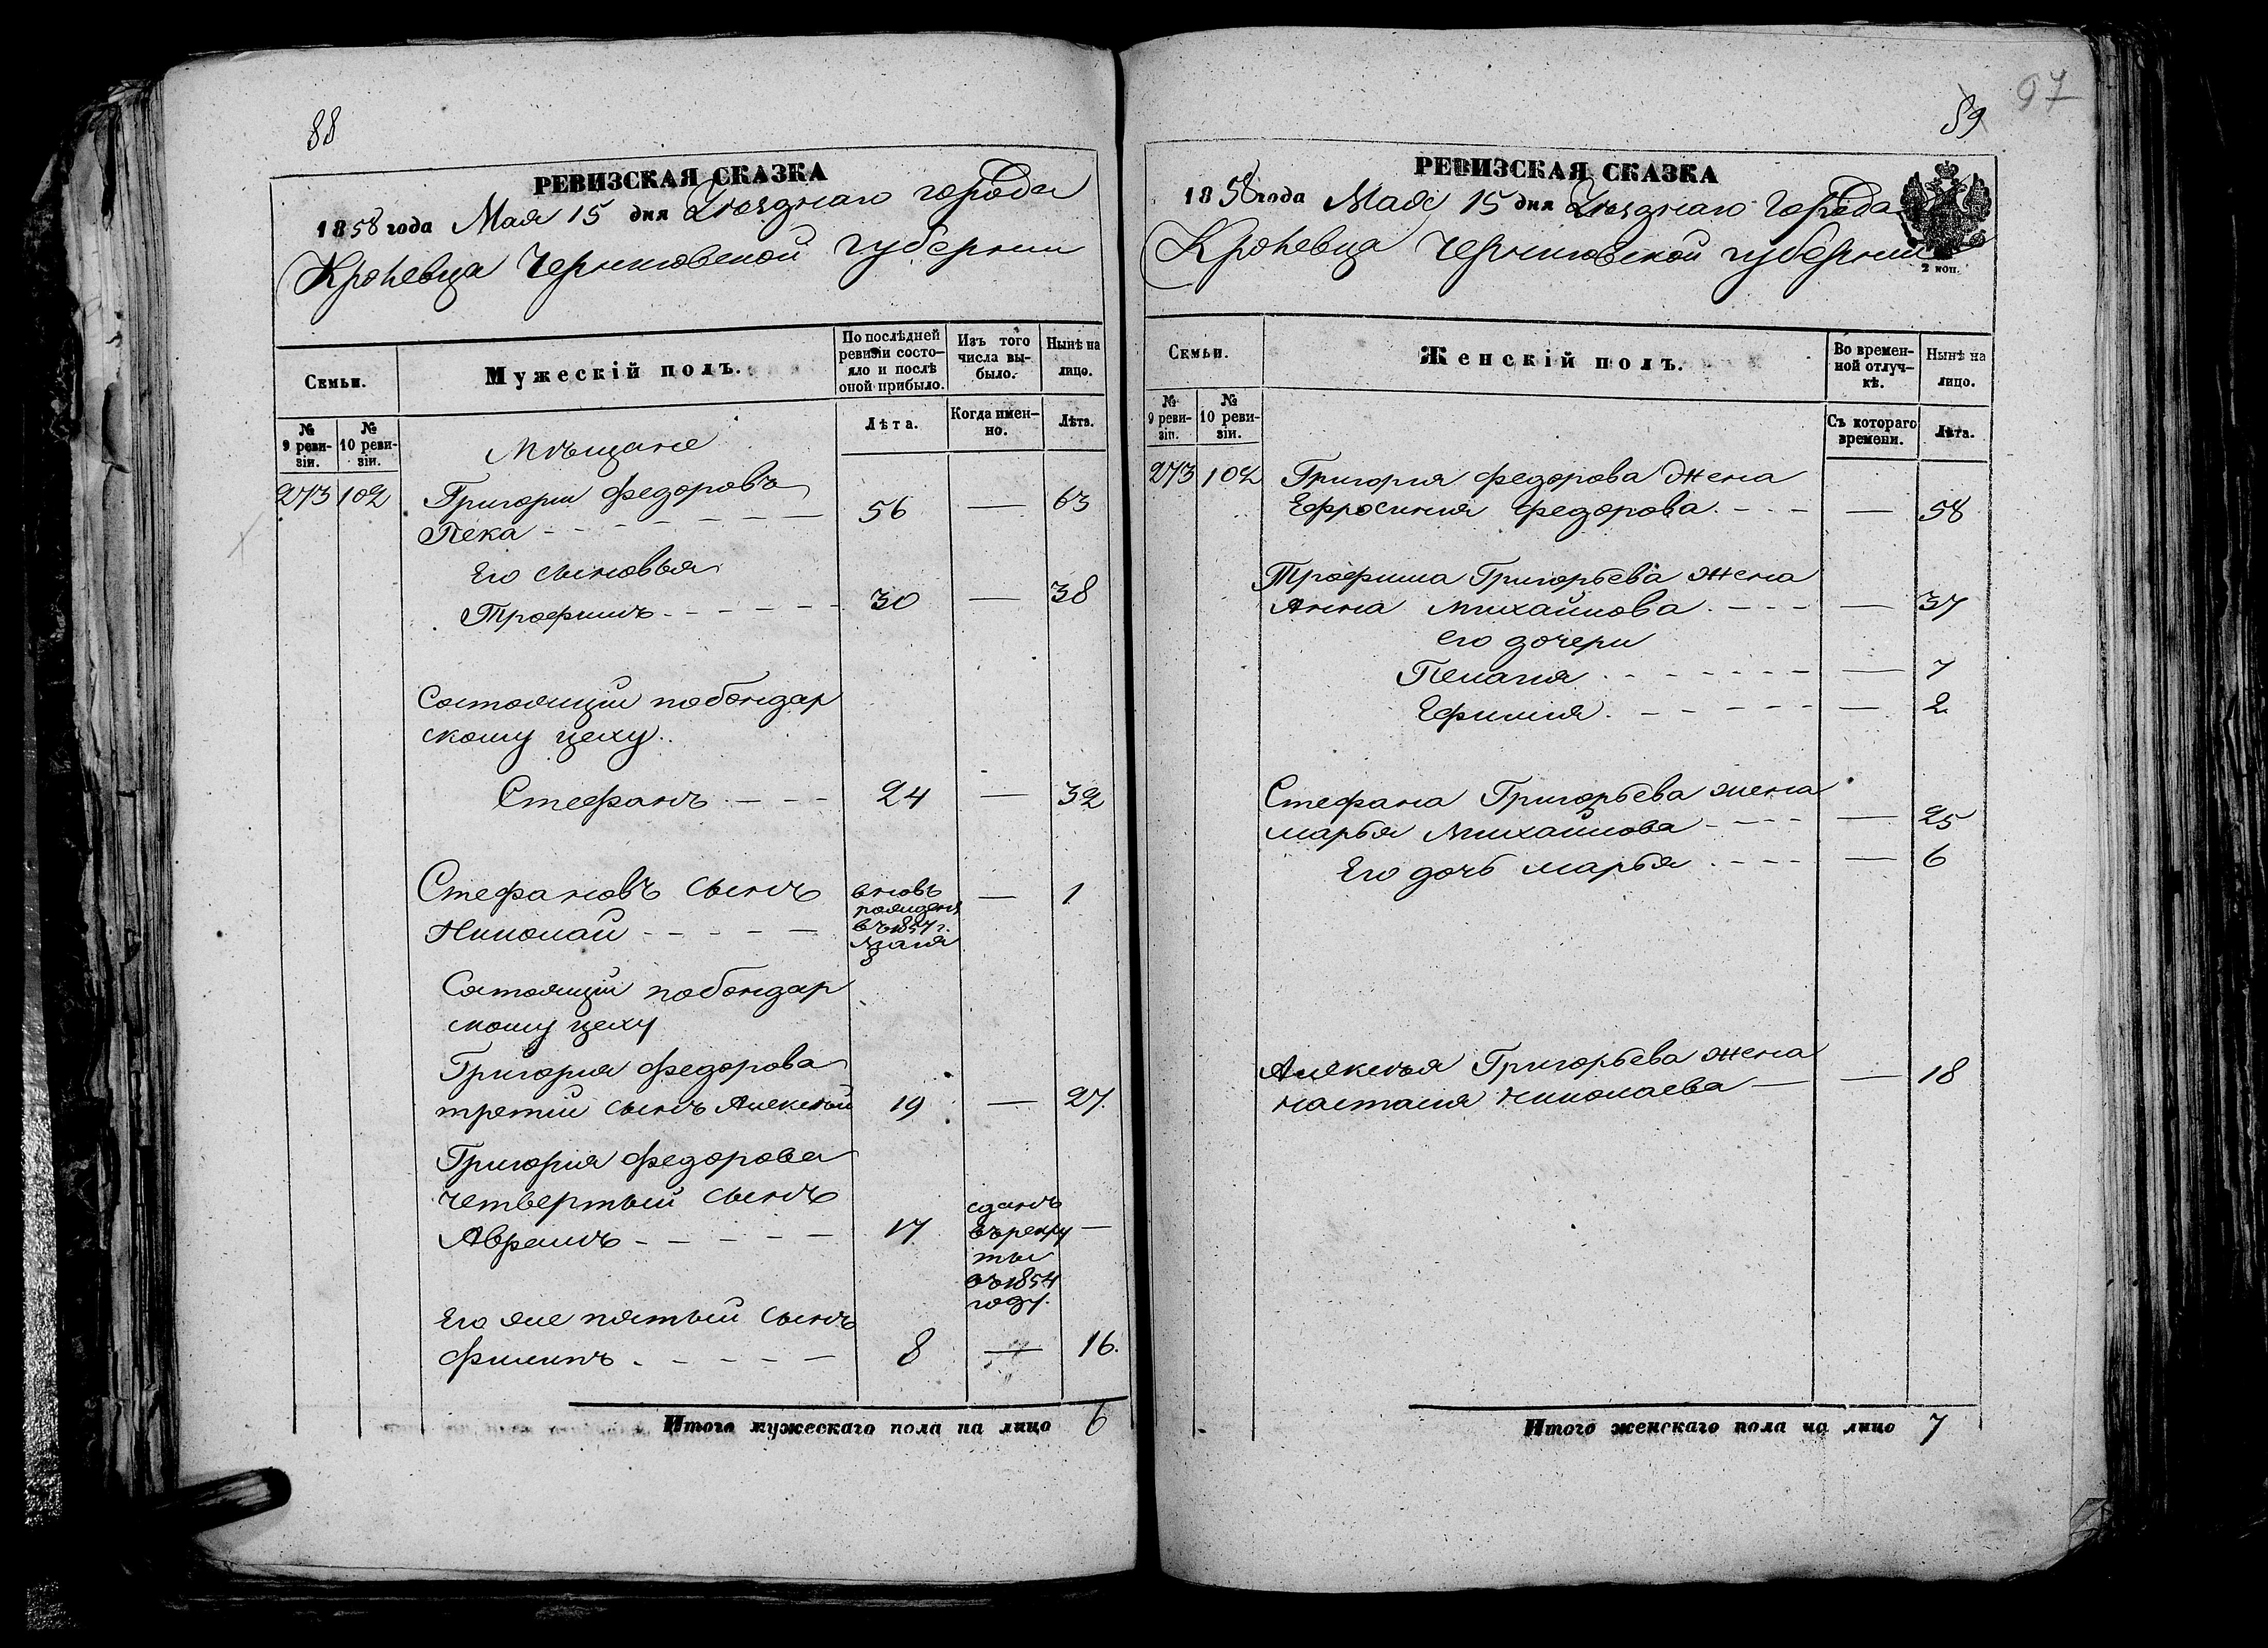 88
РЕВИЗСКАЯ СКАЗКА
1858 года Мая 15 дня Уѣзднаго города
Кролевца Черниговской губернии
Семьи.
Мужескій полъ.
По послѣдней ревизіи состо-
яло и послѣ
оной прибыло.
Изъ того
числа вы-
было.
Нынѣ на
лицо.
№
9 реви-
зіи.
№
10 реви-
зіи.
Лѣта.
Когда имен-
но.
Лѣта.
Мѣщане
273 102 Григорий Федоровъ
Пека 56 — 63
Его сыновья
Трофимъ 30 — 38
Состоящий побондар
скому цеху.
Стефанъ 24 — 32
Стефановъ сынъ
Николай
вновь
рожденъ
въ 1857 г.
Мая
8
— 1
Состоящий побондар
скому цеху
Григория Федорова
третий сынъ Алексѣй 19 — 27.
Григория Федорова
четвертый сынъ
Аврамъ 17
сданъ
въ рекру
ты
въ 1854
году.
—
Его же пятый сынъ
Филипъ 8 — 16.
Итого мужескаго пола на лицо 6
97
89
РЕВИЗСКАЯ СКАЗКА
1858 года Мая 15 дня Уѣзднаго Города
Кролевца Черниговской губернии
2 коп.
Семьи.
Женскій полъ.
Во времен-
ной отлуч-
кѣ.
Нынѣ на
лицо.
№
9 реви-
зіи.
№
10 реви-
зіи.
Съ котораго
времени.
Лѣта.
273 102 Григория Федорова жена
Ефросиния Федорова — 58
Трофима Григорьева жена
Анна Михайлова — 37
его дочери
Пелагия — 7
Ефимия — 2
Стефана Григорьева жена
Марья Михайлова — 25
Его дочь Марья — 6
Алексѣя Григорьева жена
Настасия Николаева — 18
Итого женскаго пола на лицо 7